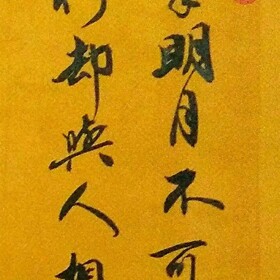 明月不可
行却與人相